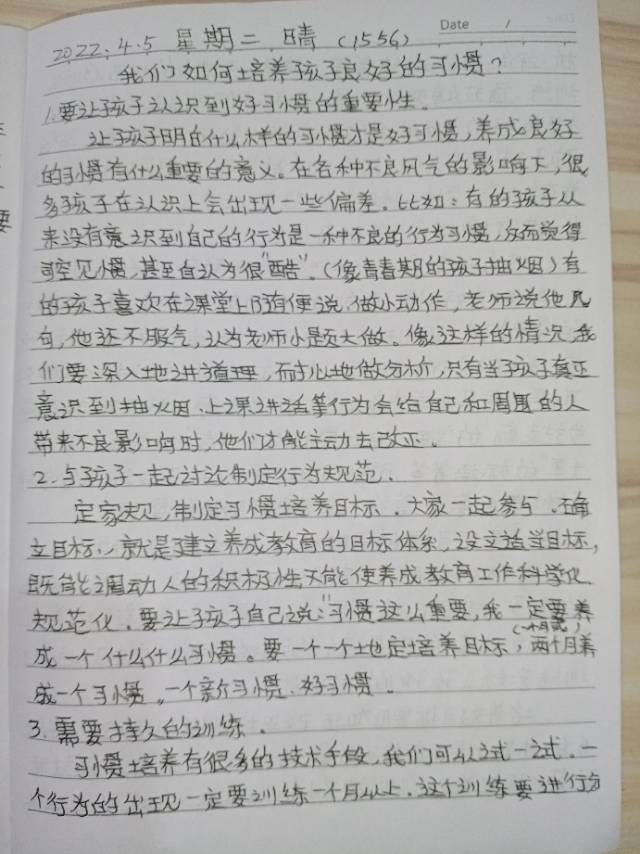 Date /
2022.4.5 星期二 晴 (1556)
我们如何培养孩子良好的习惯?
1.要让孩子认识到好习惯的重要性。
让孩子明白什么样的习惯才是好习惯,养成良好
的习惯有什么重要的意义。在各种不良风气的影响下,很
多孩子在认识上会出现一些偏差。比如:有的孩子从
来没有意识到自己的行为是一种不良的行为习惯,反而觉得
司空见惯,甚至自认为很“酷”。(像青春期的孩子抽烟)有
的孩子喜欢在课堂上随便说、做小动作,老师说他几
句,他还不服气,认为老师小题大做。像这样的情况,我
们要深入地讲道理,耐心地做分析,只有当孩子真正
意识到抽烟、上课讲话等行为会给自己和周围的人
带来不良影响时,他们才能主动去改正。
2.与孩子一起讨论制定行为规范.
定家规,制定习惯培养目标、大家一起参与、确
立目标、就是建立养成教育的目标体系,设立适当目标,
既能调动人的积极性又能使养成教育工作科学化、
规范化,要让孩子自己说:“习惯这么重要,我一定要养
成一个什么什么习惯。要一个一个地定培养目标,两个月养
成一个习惯。一个新习惯、好习惯。
3.需要持久的训练。
习惯培养有很多的技术手段,我们可以试一试。一
个行为的出现一定要训练一个月以上,这个训练要进行分